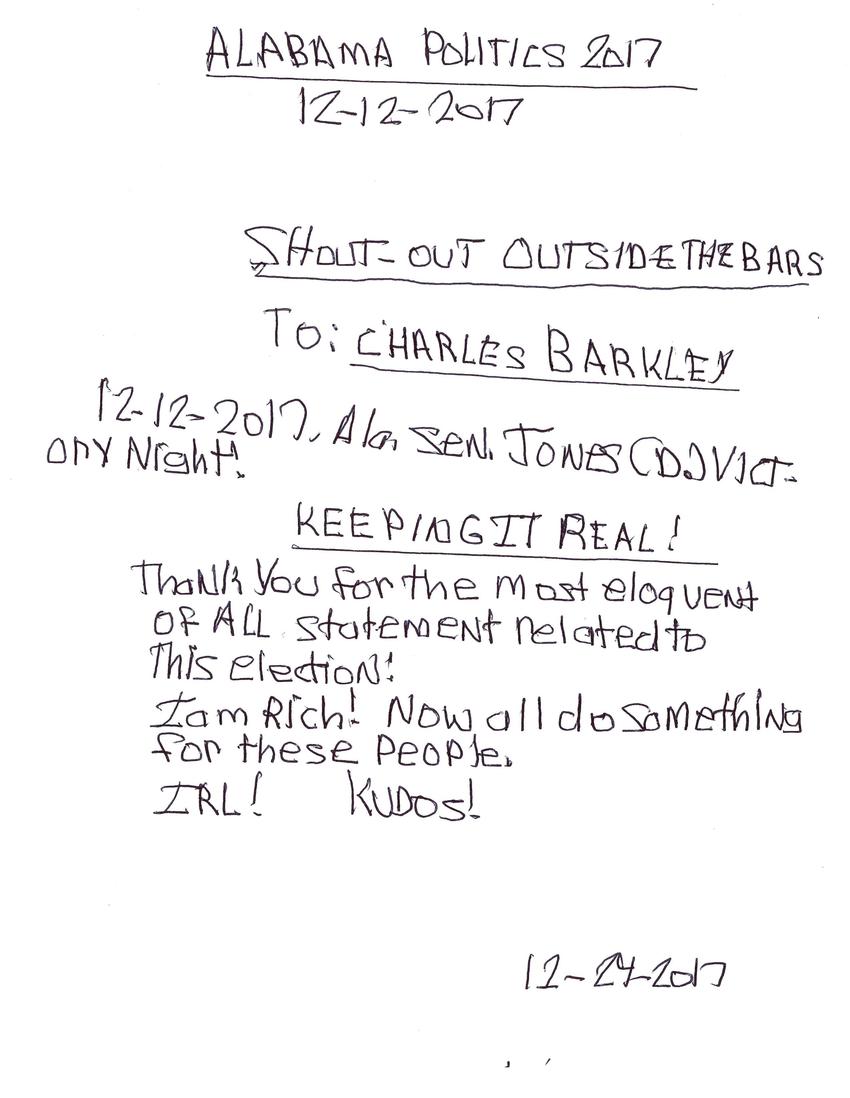 ALABAMA POLITICS 2017
12-12-2017
SHOUT-OUT OUTSIDE THE BARS
TO: CHARLES BARKLEY
12-12-2017, Ala, SEN. JONES (D.) VICT-
ORY Night!
KEEPING IT REAL!
Thank You for the most eloquent
OF ALL statement related to
This election!
I am Rich! Now all do something
for these people.
IRL! KUDOS!
12-24-2017